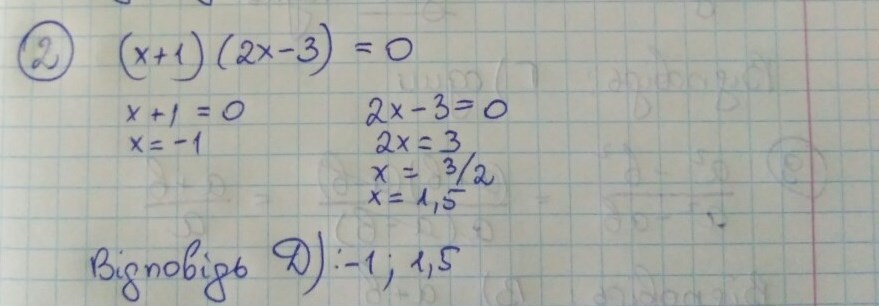 2 (x+1)(2x-3) = 0
x+1 = 0 2x-3=0
x=-1 2x=3
x = 3/2
x= 1,5
Відповідь Д):-1; 1,5